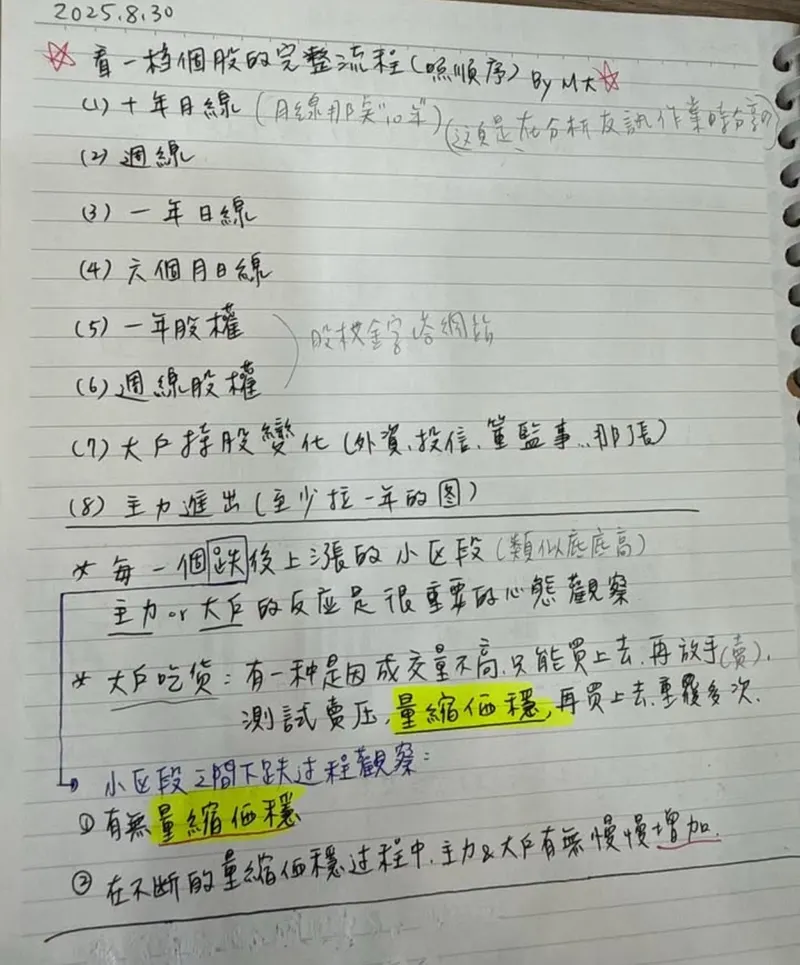 2025.8.30
☆ 看一檔個股的完整流程(照順序) By M大☆
(1) 十年日線 (月線那突"10年") (這頁是在分析友訊作業時分享的)
(2) 週線
(3) 一年日線
(4) 六個月日線
(5) 一年股權
股權金字塔網站
(6) 週線股權
(7) 大戶持股變化 (外資、投信、董監事...那張)
(8) 主力進出 (至少拉一年的图)
* 每一個跌後上漲的小区段 (類似底底高)
主力 or 大戶的反應是很重要的心態觀察
* 大戶吃货：有一種是因成交量不高,只能買上去,再放手(賣),
測試賣压,量縮価穩,再買上去,重覆多次.
小区段之間下跌过程觀察：
① 有無量縮価穩
② 在不斷的量縮価穩过程中,主力&大戶有無慢慢增加.